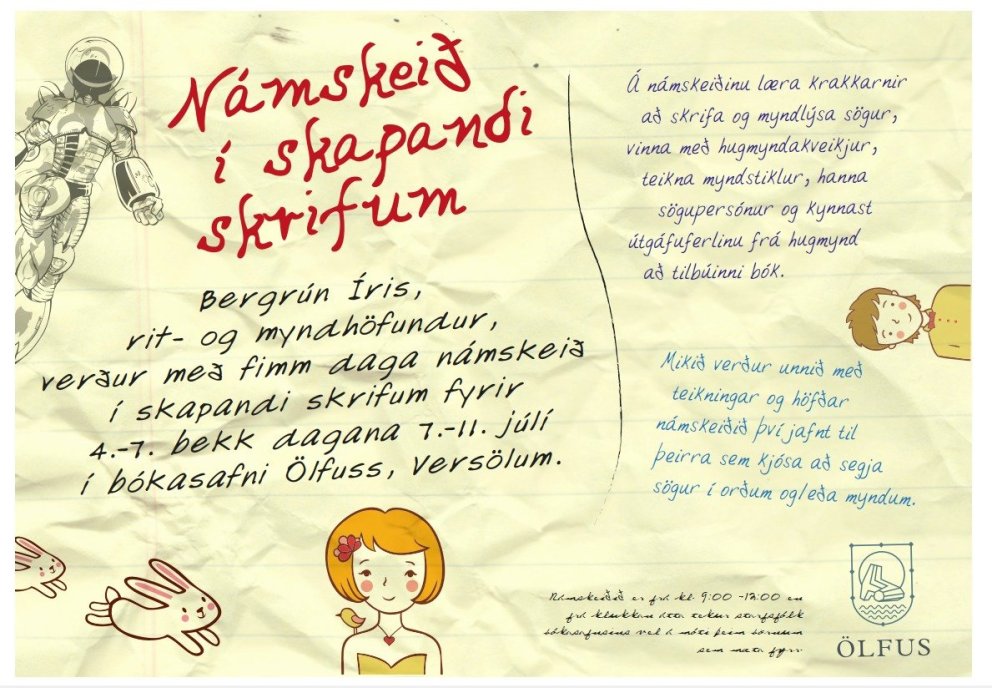 Námskeið
í skapandi
skrifum
Bergrún Íris,
rit- og myndhöfundur,
verður með fimm daga námskeið
í skapandi skrifum fyrir
4.-7. bekk dagana 7.-11. júlí
í bókasafni Ölfuss, Versölum.
Á námskeiðinu læra krakkarnir
að skrifa og myndlýsa sögur,
vinna með hugmyndakveikjur,
teikna myndstiklur, hanna
sögupersónur og kynnast
útgáfuferlinu frá hugmynd
að tilbúinni bók.
Mikið verður unnið með
teikningar og höfðar
námskeiðið því jafnt til
þeirra sem kjósa að segja
sögur í orðum og/eða myndum.
Námskeiðið er frá kl. 9:00 -12:00 en
frá klukkan átta tekur starfsfólk
bókasafnsins vel á móti þeim börnum
sem mæta fyrr
ÖLFUS